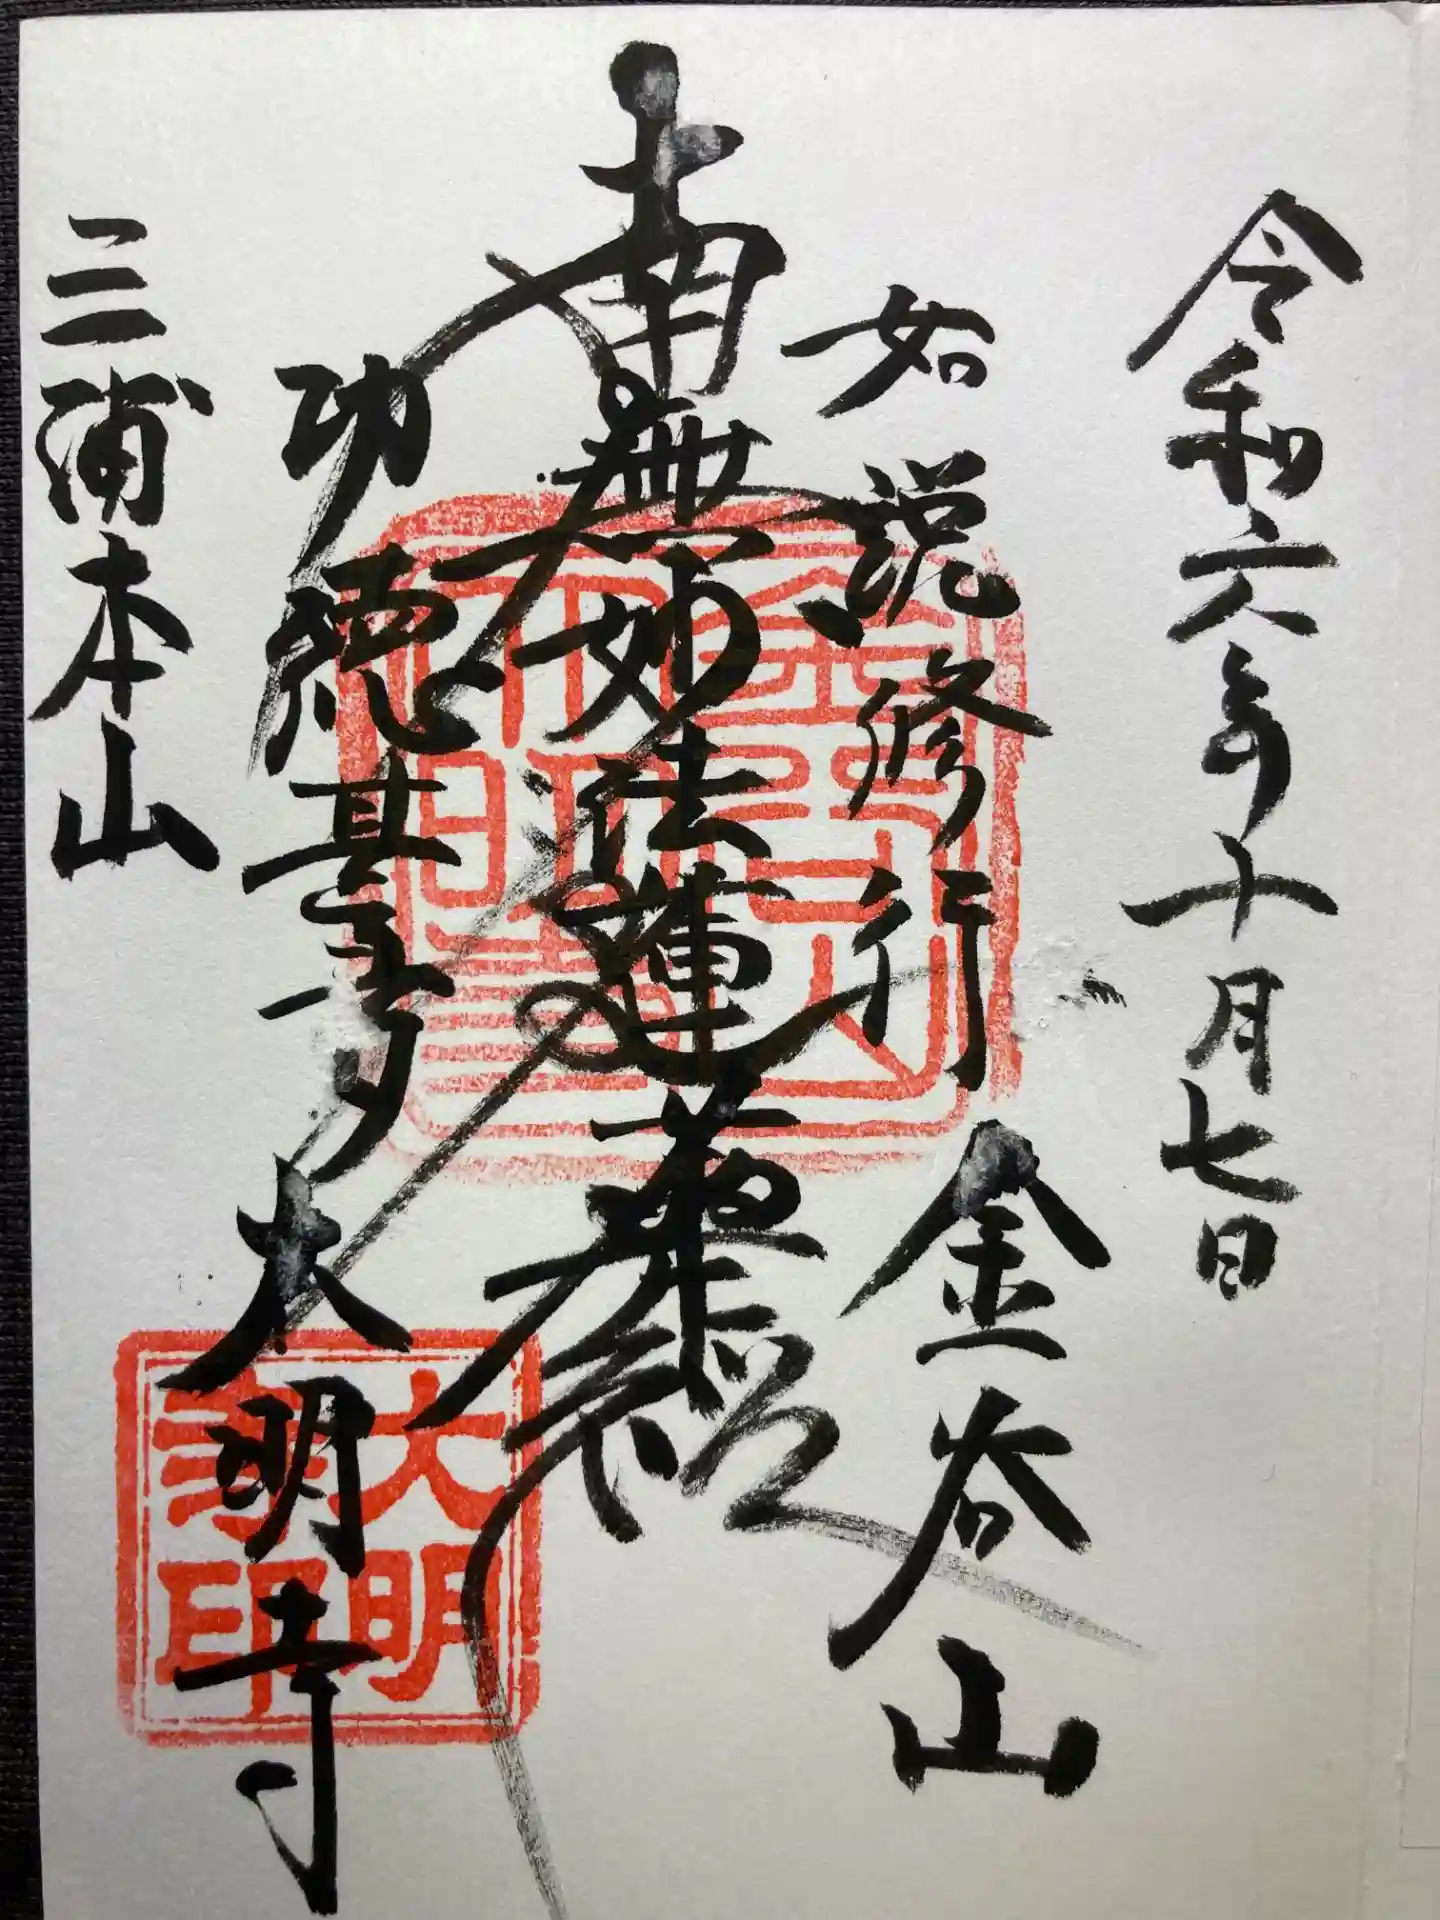 令和六年十月七日
如説修行
金谷山
南無妙法蓮華経
功徳甚多
大明寺
三浦本山
金谷山
大明寺
大明
寺印